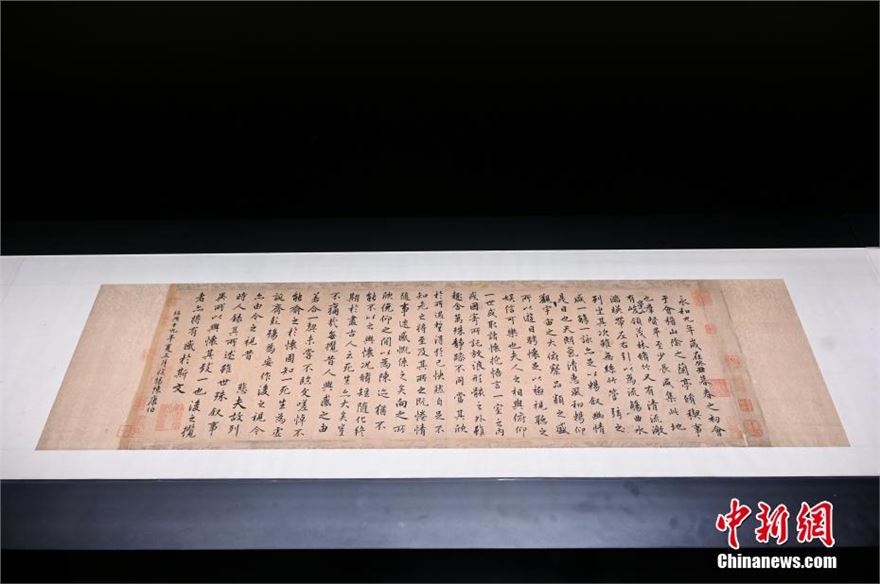 永和九年歲在癸丑暮春之初會
于會稽山陰之蘭亭脩禊事
也羣賢畢至少長咸集此地
有峻領茂林脩竹又有清流激
湍暎帶左右引以為流觴曲水
列坐其次雖無絲竹管弦之
盛一觴一詠亦足以暢叙幽情
是日也天朗氣清惠風和暢仰
觀宇宙之大俯察品類之盛
所以遊目騁懷足以極視聽之
娱信可樂也夫人之相與俯仰
一世或取諸懷抱悟言一室之内
或因寄所託放浪形骸之外雖
趣舍萬殊靜躁不同當其欣
於所遇暫得於己快然自足不
知老之將至及其所之既惓情
隨事遷感慨係之矣向之所
欣俛仰之間以為陳迹猶不
能不以之興懷況脩短隨化終
期於盡古人云死生亦大矣豈
不痛哉每攬昔人興感之由
若合一契未嘗不臨文嗟悼不
能喻之於懷固知一死生為虛
誕齊彭殤為妄作後之視今
亦由今之視昔 悲夫故列
叙時人錄其所述雖世殊事
異所以興懷其致一也後之攬
者亦將有感於斯文
紹興十九年夏五月陽陳康伯
中新網
Chinanews.com